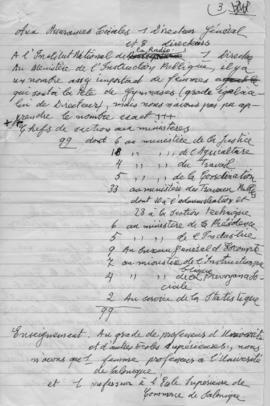 (3
Aux Assurances Sociales 1 Directeur Général
et directions
la Radio:
A l'Institut National de 1 Direct
Au Ministère de l'Instruction Publique, il y a
un nombre assez important de femmes
qui sont à la tête de Gymnases (grade égal à ce
lui de Directeur), mais nous n'avons pas pu ap
prendre le nombre exact
Chefs de section aux ministères
99 dont 6 au ministère de la Justice
18 " " de l'Agriculture
4 " " du Travail
5 " " de la Coordination
33 au ministère des Travaux Publ
dont 10 à l'administration et
23 à la section technique
6 au ministère de la Présidence
5 " " de l'Industrie
9 Au bureau général d'
7 au ministère de l'Instruction
blique
4 " " de la Prévoyance
ciale
2 Au service de la Statistique
99
Enseignement: Au grade de professeur d'Université
et d'autres Ecoles Supérieures, nous
n'avons que 1 femme professeur à l'Université
de Salonique
et 1 professeur à l'Ecole Supérieure de
Commerce de Salonique